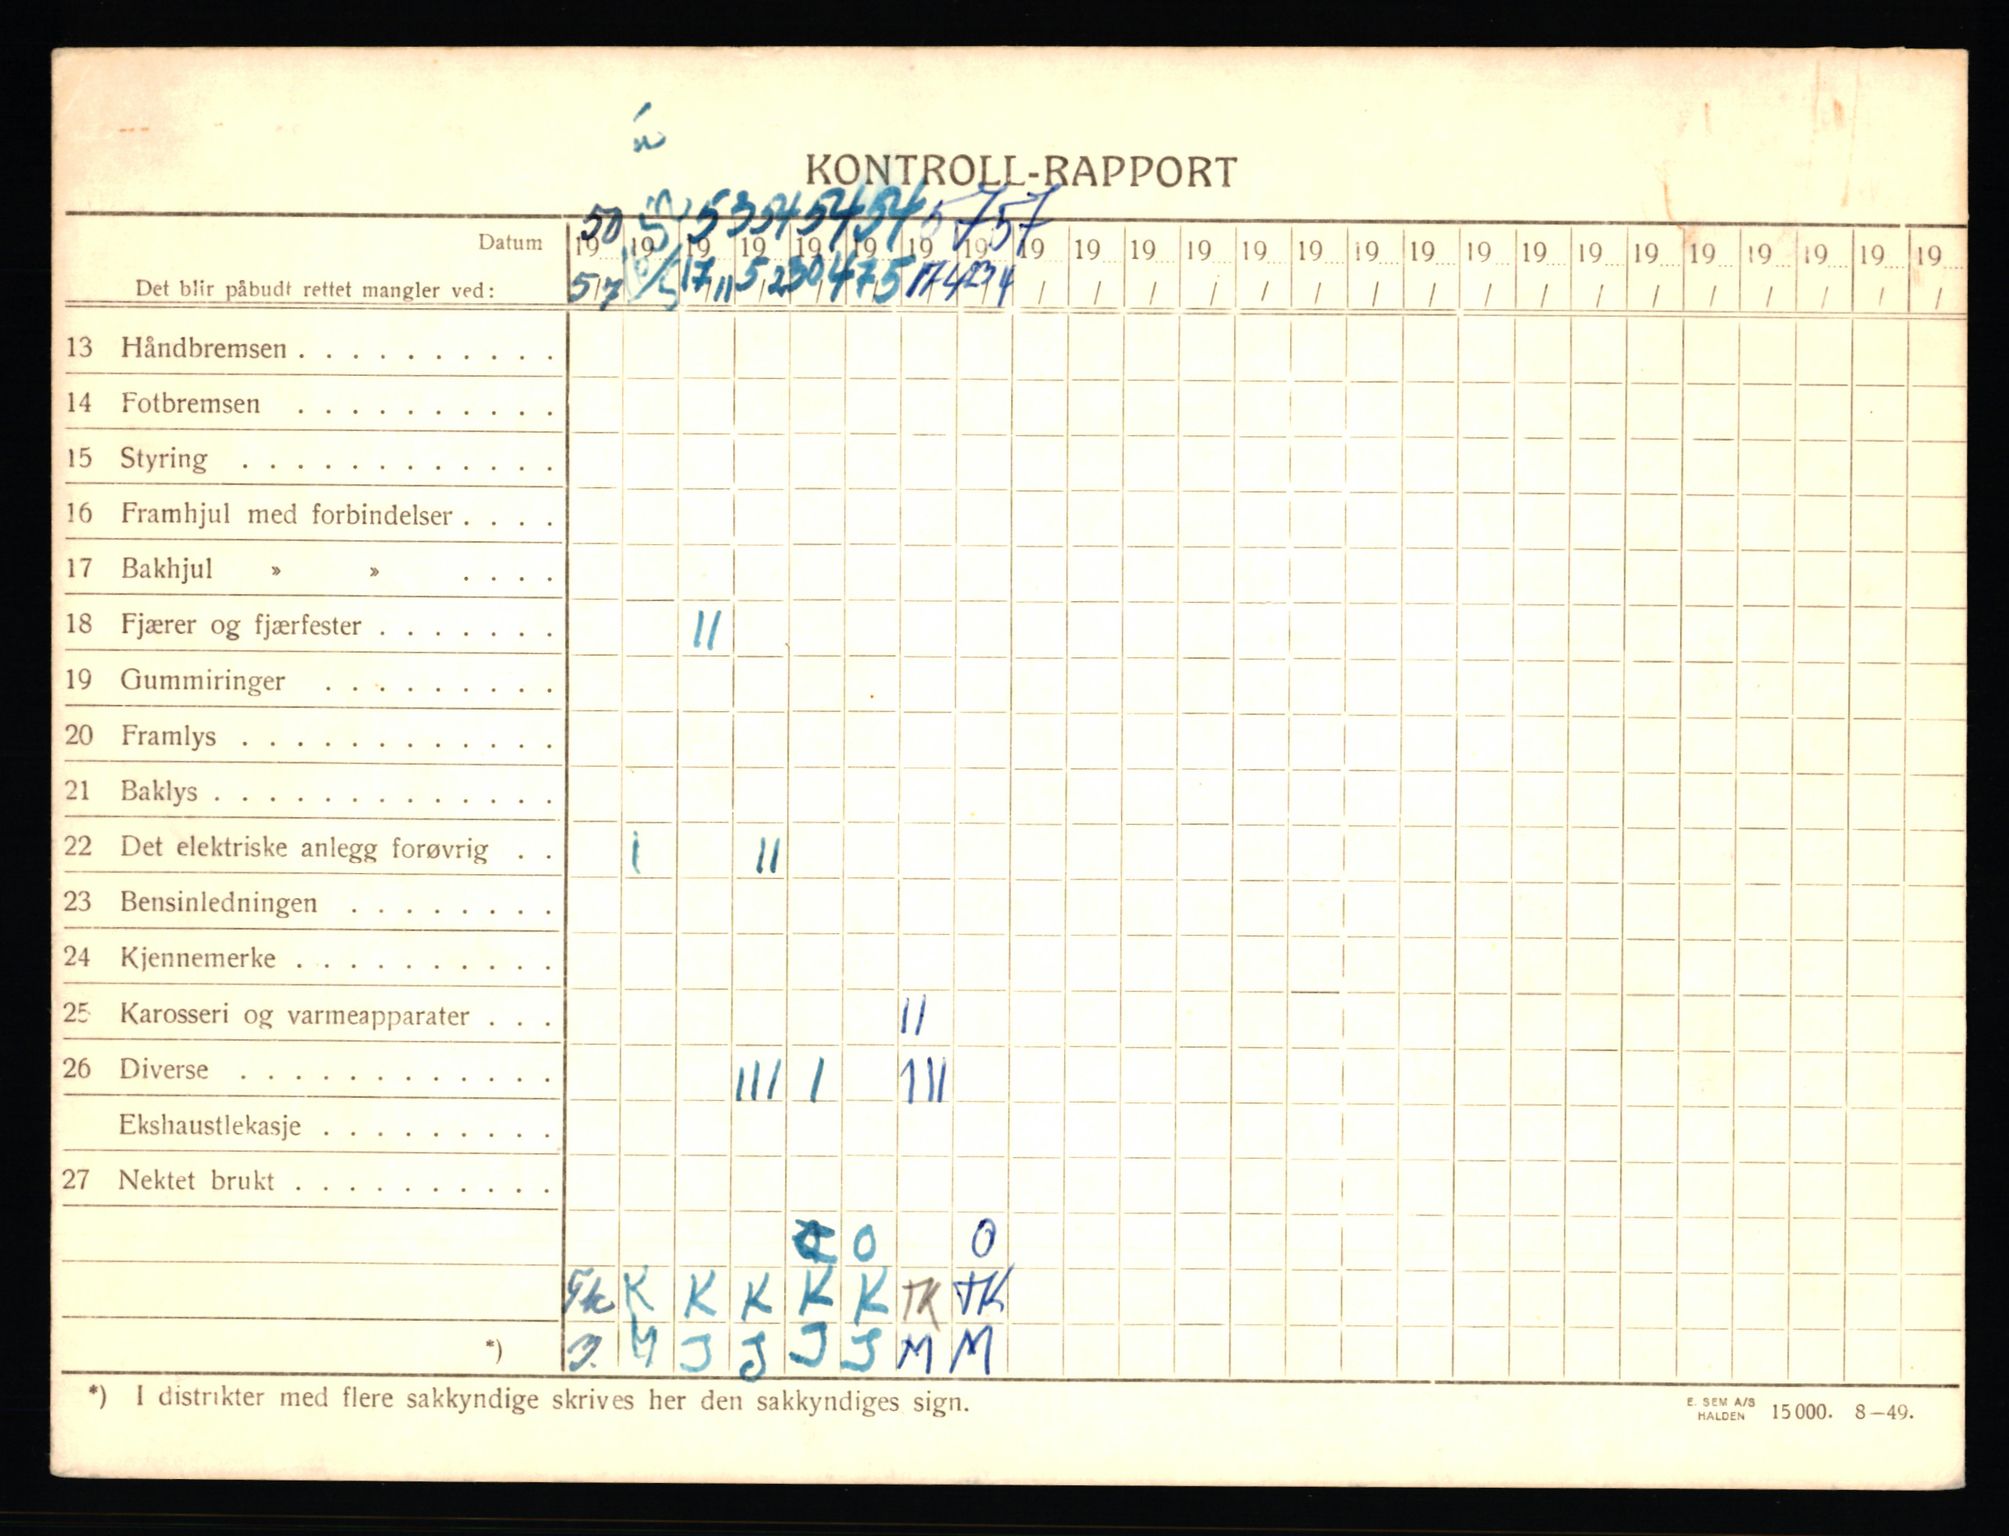 KONTROLL-RAPPORT
50 53 54 54 54 57 57
Datum 19 19 19 19 19 19 19 19 19 19 19 19 19 19 19 19 19 19 19 19 19 19 19 19 19
Det blir påbudt rettet mangler ved: 5/7 17/11 5/2 30/4 7/5 17/4 23/4 / / / / / / / / / / / / / / / / /
13 Håndbremsen . . . . . . . . . .
14 Fotbremsen . . . . . . . . . .
15 Styring . . . . . . . . . . . .
16 Framhjul med forbindelser . . . .
17 Bakhjul » » . . . .
18 Fjærer og fjærfester . . . . . . . II
19 Gummiringer . . . . . . . . .
20 Framlys . . . . . . . . . . . .
21 Baklys . . . . . . . . . . . . .
22 Det elektriske anlegg forøvrig . . I II
23 Bensinledningen . . . . . . . .
24 Kjennemerke . . . . . . . . . .
25 Karosseri og varmeapparater . . . II
26 Diverse . . . . . . . . . . . . III I III
Ekshaustlekasje . . . . . . . . .
27 Nektet brukt . . . . . . . . . .
O O
K K K K K TK TK
*) J J J J M M
*) I distrikter med flere sakkyndige skrives her den sakkyndiges sign.
E. SEM A/S
HALDEN 15 000. 8—49.